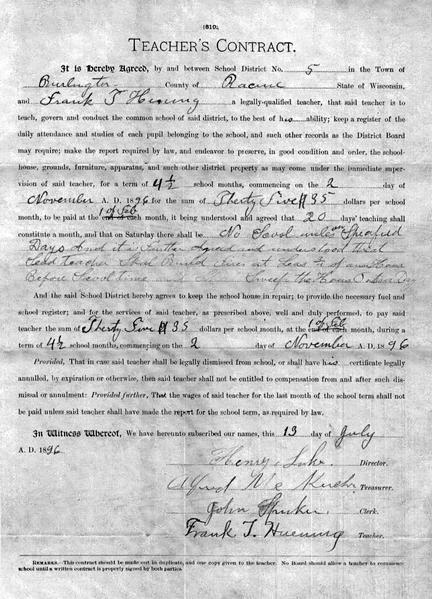 (610.)
TEACHER'S CONTRACT.
It is Hereby Agreed, by and between School District No. 5 in the Town of
Burlington County of Racine State of Wisconsin,
and Frank T Huening a legally-qualified teacher, that said teacher is to
teach, govern and conduct the common school of said district, to the best of his ability; keep a register of the
daily attendance and studies of each pupil belonging to the school, and such other records as the District Board
may require; make the report required by law, and endeavor to preserve, in good condition and order, the school-
house, grounds, furniture, apparatus, and such other district property as may come under the immediate super-
vision of said teacher, for a term of 4½ school months, commencing on the 2 day of
November A. D. 1896 for the sum of Therty Five $ 35 dollars per school
month, to be paid at the 1 of Feb each month, it being understood and agreed that 20 days' teaching shall
constitute a month, and that on Saturday there shall be No School unless on Specified
Days And it is further agreed and understood that
said teacher shall Build fires at least half an hour
Before School time and Sweep the House
And the said School District hereby agrees to keep the school house in repair; to provide the necessary fuel and
school register; and for the services of said teacher, as prescribed above, well and duly performed, to pay said
teacher the sum of Therty Five $ 35 dollars per school month, at the 1 of Feb each month, during a
term of 4½ school months, commencing on the 2 day of November A. D. 1896
Provided, That in case said teacher shall be legally dismissed from school, or shall have his certificate legally
annulled, by expiration or otherwise, then said teacher shall not be entitled to compensation from and after such dis-
missal or annulment: Provided further, That the wages of said teacher for the last month of the school term shall
not be paid unless said teacher shall have made the report for the school term, as required by law.
In Witness Whereof, We have hereunto subscribed our names, this 13 day of July
A. D. 1896
Henry Director.
Alfred Treasurer.
John Clerk.
Frank T. Huening Teacher.
REMARKS.—This contract should be made out in duplicate, and one copy given to the teacher. No Board should allow a teacher to commence
school until a written contract is properly signed by both parties.